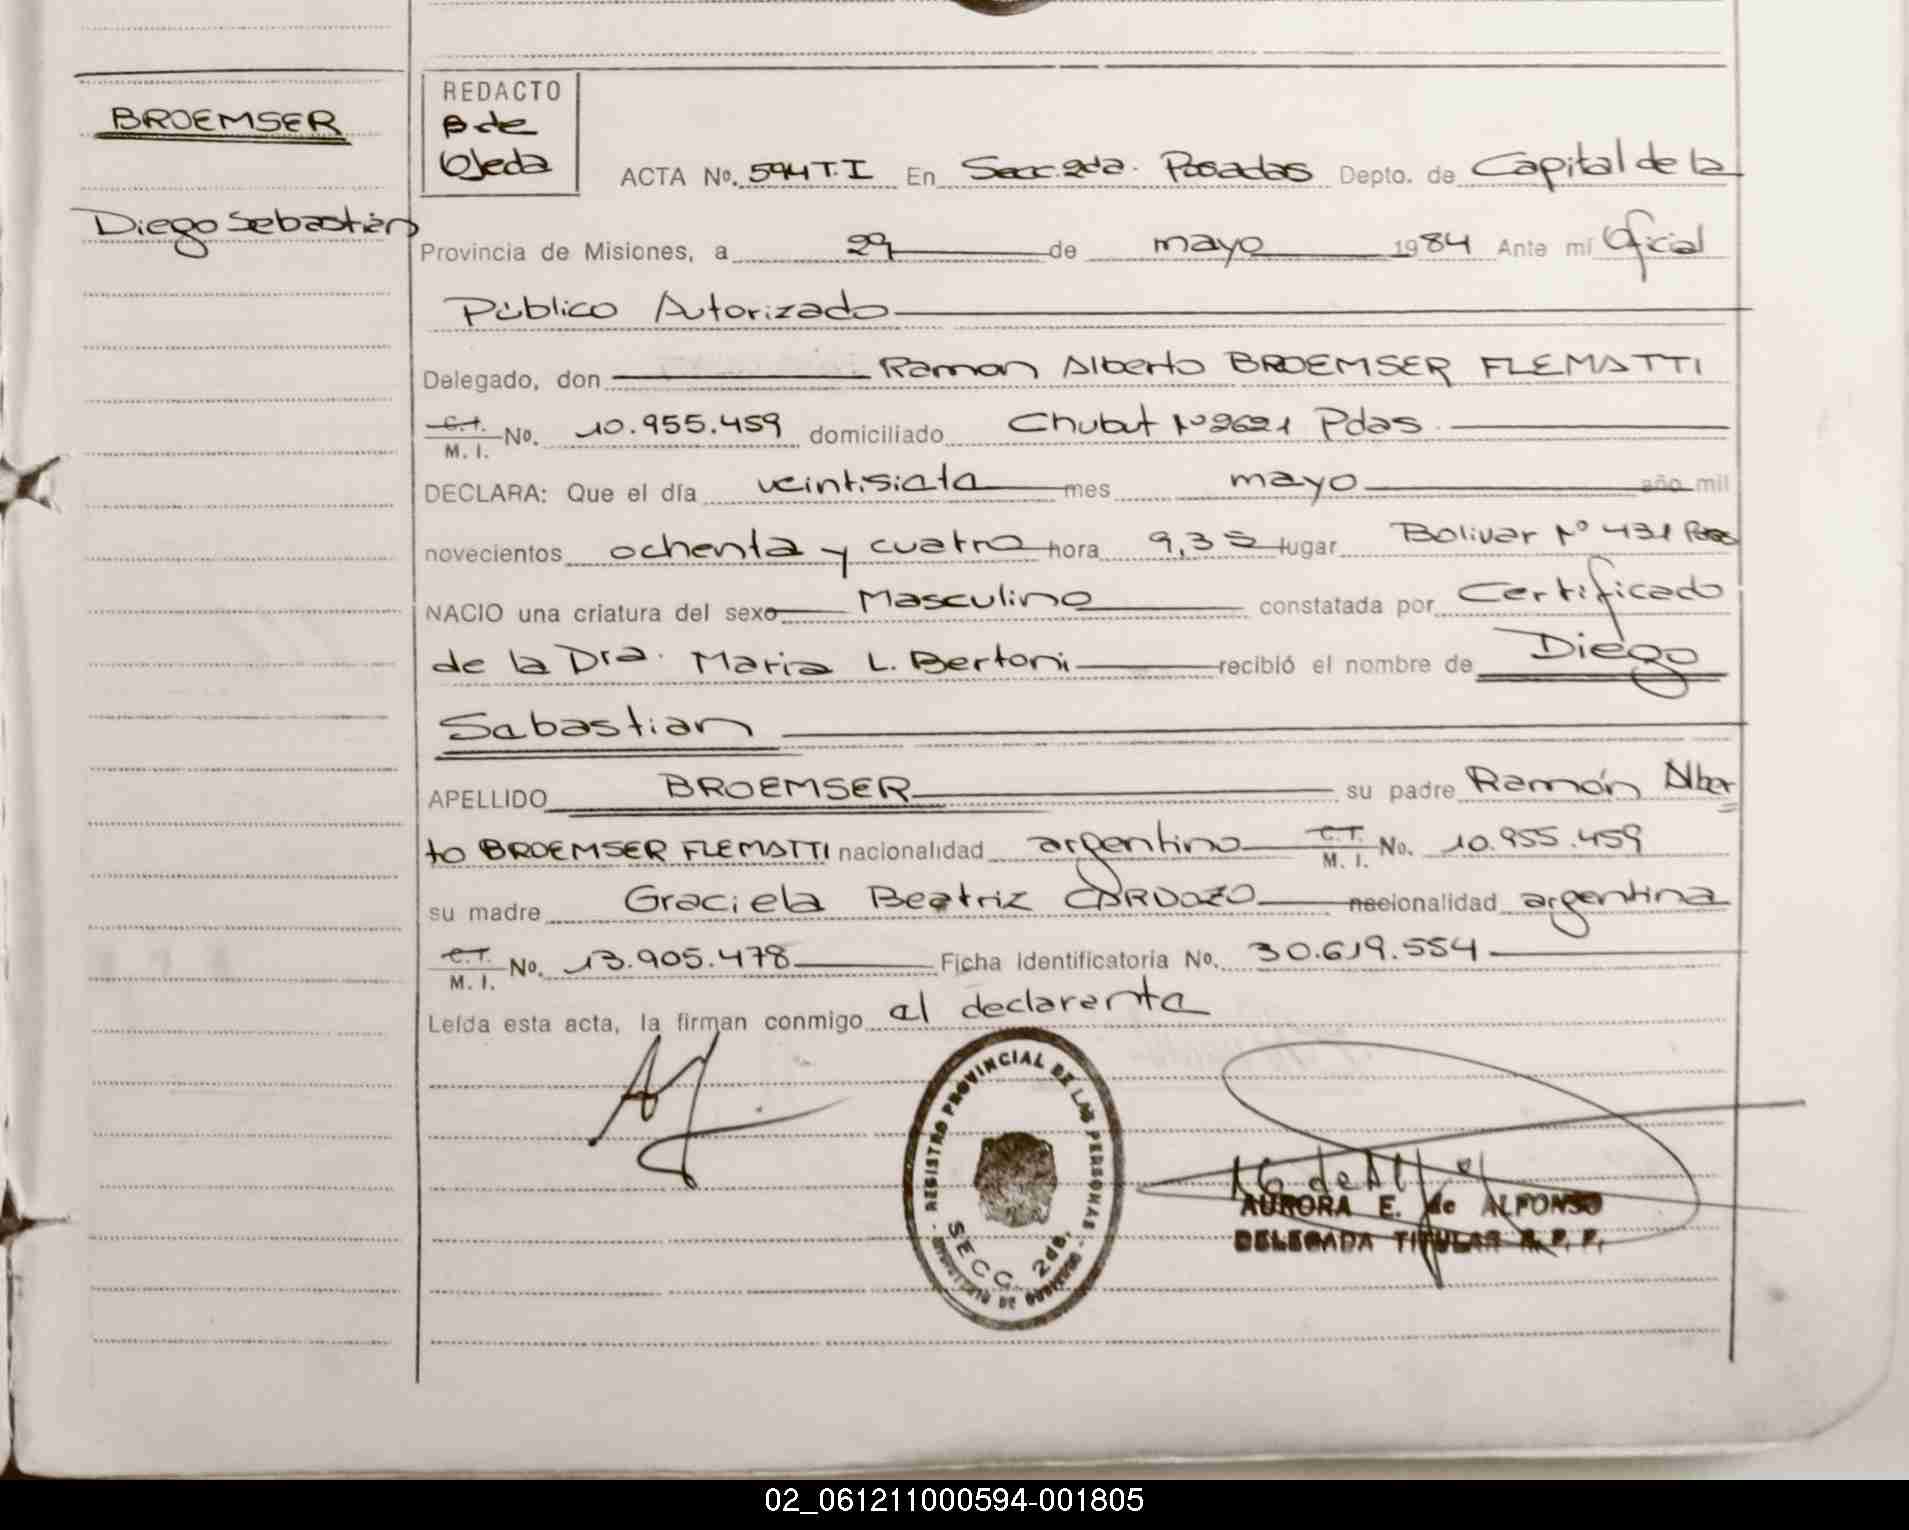 BROEMSER
Diego Sebastián
REDACTO
B de
Ojeda
ACTA No. 594 T.I En Secc. 2da. Posadas Depto. de Capital de la
Provincia de Misiones, a 29 de mayo 1984 Ante mí Oficial
Público Autorizado
Delegado, don Ramon Alberto BROEMSER FLEMATTI
C.I. M. I. No. 10.955.459 domiciliado Chubut Nº 2621 Pdas
DECLARA: Que el día veintisiete mes mayo año mil
novecientos ochenta y cuatro hora 9,35 lugar Bolivar Nº 431 Pdas
NACIO una criatura del sexo Masculino constatada por Certificado
de la Dra. Maria L. Bertoni recibió el nombre de Diego
Sebastian
APELLIDO BROEMSER su padre Ramón Alber
to BROEMSER FLEMATTI nacionalidad argentino C.I. M. I. No. 10.955.459
su madre Graciela Beatriz CARDOZO nacionalidad argentina
C.I. M. I. No. 13.905.478 Ficha identificatoria No. 30.619.554
Leída esta acta, la firman conmigo el declarante
REGISTRO PROVINCIAL DE LAS PERSONAS
SECC. 2da.
MINISTERIO DE GOBIERNO
AURORA E. de ALFONSO
DELEGADA TITULAR R. P. P.
02_061211000594-001805